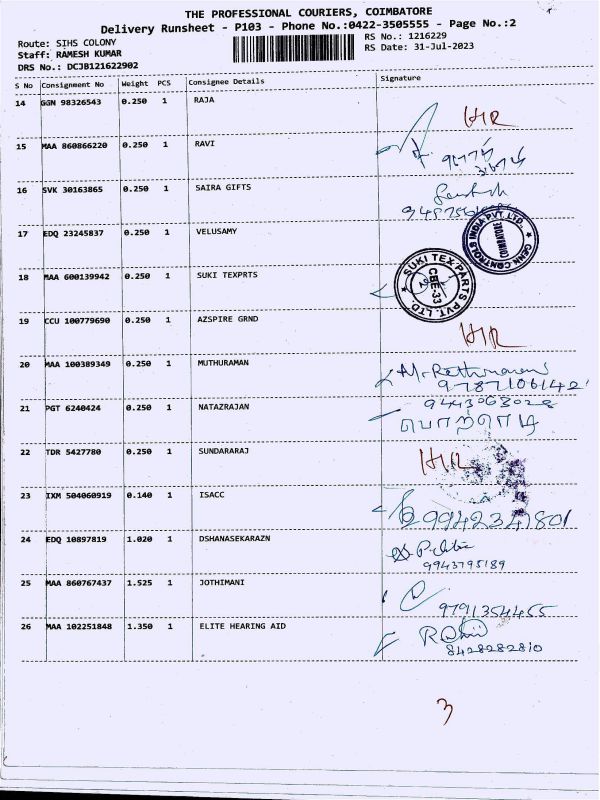 THE PROFESSIONAL COURIERS, COIMBATORE
Delivery Runsheet - P103 - Phone No.:0422-3505555 - Page No.:2
Route: SIHS COLONY
RS No.: 1216229
Staff: RAMESH KUMAR
RS Date: 31-Jul-2023
DRS No.: DCJB121622902
S No Consignment No Weight PCS Consignee Details Signature
14 GGN 98326543 0.250 1 RAJA HR
15 MAA 860866220 0.250 1 RAVI
16 SVK 30163865 0.250 1 SAIRA GIFTS
17 EDQ 23245837 0.250 1 VELUSAMY
GENN CONTROLS INDIA PVT. LTD. COIMBATORE
18 MAA 600139942 0.250 1 SUKI TEXPRTS
SUKI TEX-PARTS PVT. LTD. CBE-33
19 CCU 100779690 0.250 1 AZSPIRE GRND HR
20 MAA 100389349 0.250 1 MUTHURAMAN
9787106142
21 PGT 6240424 0.250 1 NATAZRAJAN
9443063028
22 TDR 5427780 0.250 1 SUNDARARAJ HR
23 IXM 504060919 0.140 1 ISACC
9942347801
24 EDQ 10897819 1.020 1 DSHANASEKARAZN
9943795189
25 MAA 860767437 1.525 1 JOTHIMANI
9791354455
26 MAA 102251848 1.350 1 ELITE HEARING AID
8428282810
3